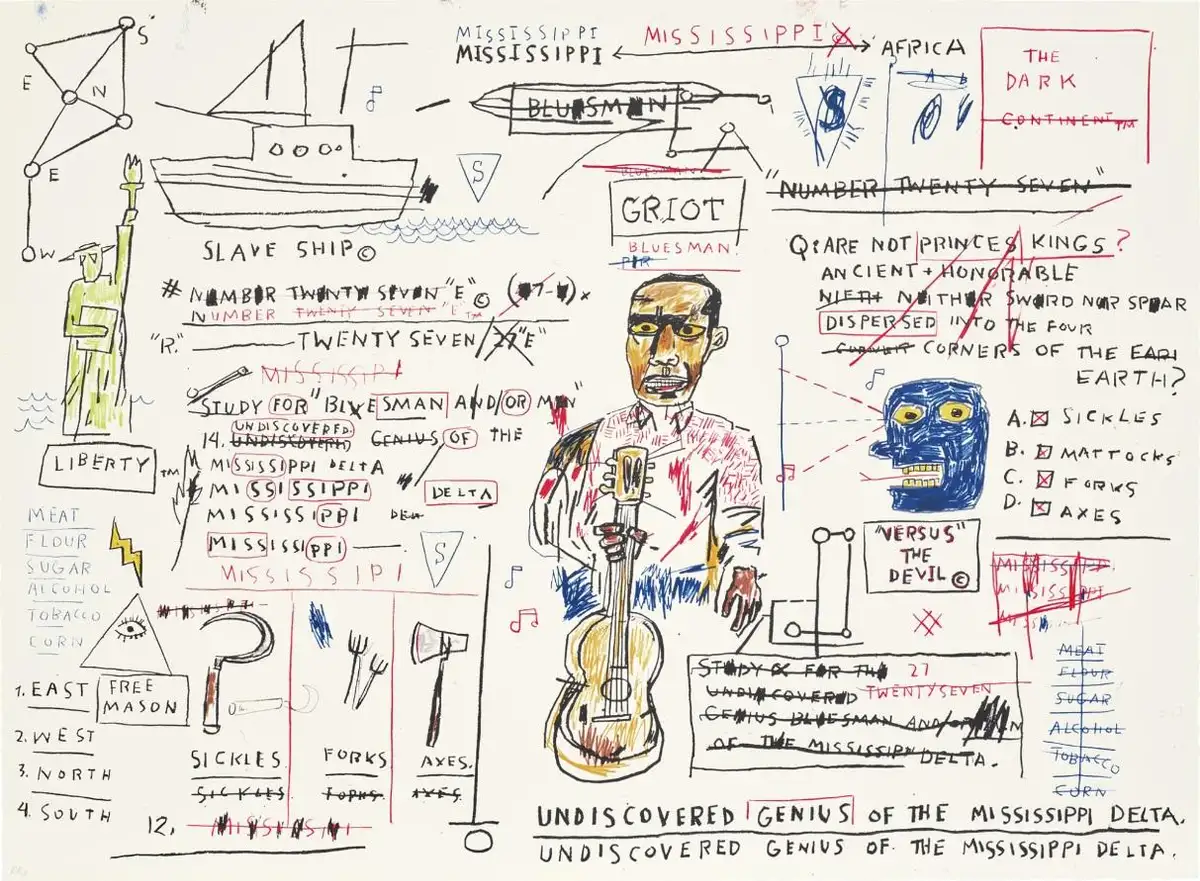 S
E
N
E
W
MISSISSIPPI
MISSISSIPPI
MISSISSIPPI
AFRICA
THE
DARK
CONTINENT TM
BLUESMAN
S
A B
S
BLUESMAN
GRIOT
BLUESMAN
SLAVE SHIP©
"NUMBER TWENTY SEVEN"
Q: ARE NOT PRINCES KINGS?
ANCIENT + HONORABLE
NEITHER SWORD NOR SPEAR
DISPERSED INTO THE FOUR
CORNERS OF THE EARTH?
# NUMBER TWENTY SEVEN "E"©
NUMBER TWENTY SEVEN "E"TM
"R." TWENTY SEVEN/27"E"
MISSISSIPI
STUDY FOR "BLUESMAN AND/OR MAN"
UNDISCOVERED
14. UNDISCOVERED GENIUS OF THE
MISSISSIPPI DELTA
MISSISSIPPI DELTA
MISSISSIPPI
MISSISSIPPI
MISSISSIPI
S
LIBERTY TM
MEAT
FLOUR
SUGAR
ALCOHOL
TOBACCO
CORN
FREE
MASON
1. EAST
2. WEST
3. NORTH
4. SOUTH
SICKLES.
SICKLES
FORKS
FORKS.
AXES.
AXES
12.
A. SICKLES
B. MATTOCKS
C. FORKS
D. AXES
"VERSUS"
THE
DEVIL©
MISSISSIPPI
MISSISSIPPI
MEAT
FLOUR
SUGAR
ALCOHOL
TOBACCO
CORN
STUDY FOR THE 27
UNDISCOVERED TWENTYSEVEN
GENIUS BLUESMAN AND/OR
OF THE MISSISSIPPI DELTA.
UNDISCOVERED GENIUS OF THE MISSISSIPPI DELTA.
UNDISCOVERED GENIUS OF THE MISSISSIPPI DELTA.